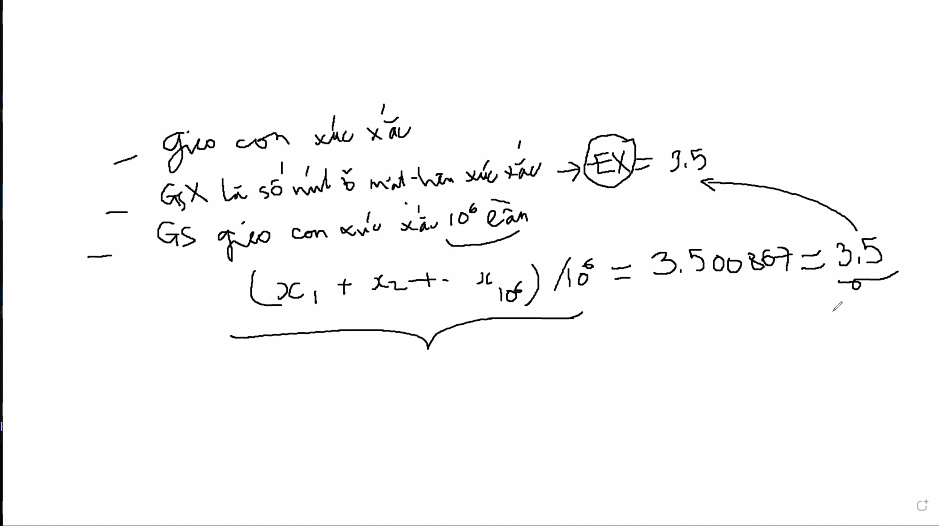 - gieo con xúc xắc
- GS X là số nút ở mặt trên xúc xắc → EX = 3.5
- GS gieo con xúc xắc 10⁶ lần
(x₁ + x₂ + ·· x₁₀⁶) / 10⁶ = 3.500867 = 3.5